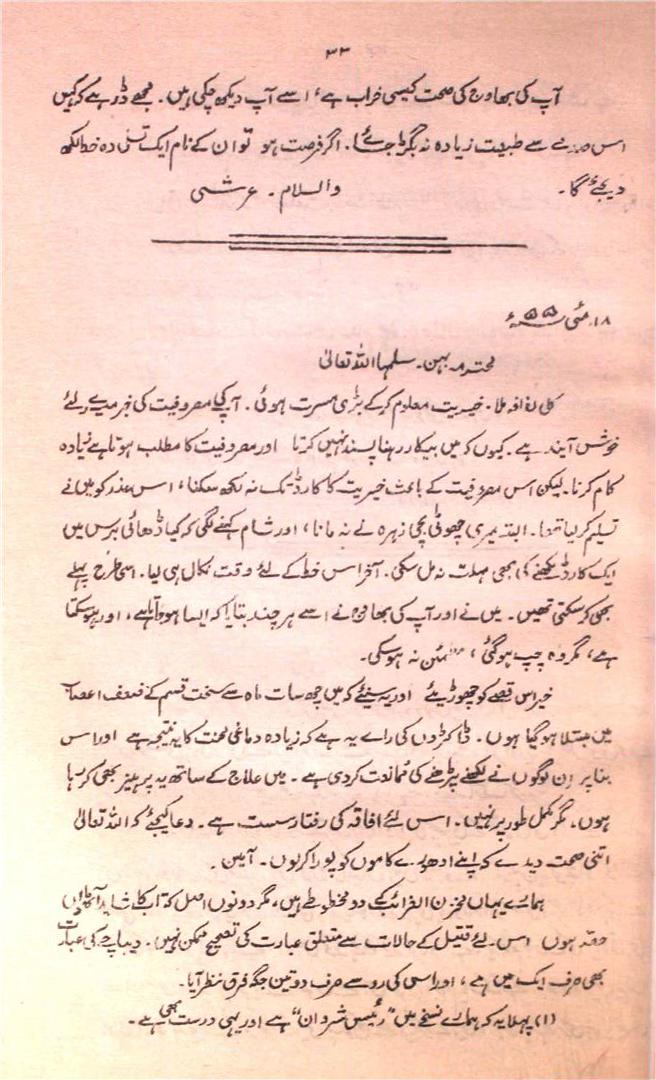 ۳۳
آپ کی بھاوج کی صحت کیسی خراب ہے، اسے آپ دیکھ چکی ہیں۔ مجھے ڈر ہے کہ کہیں
اس صدمے سے طبیعت زیادہ نہ بگڑ جائے۔ اگر فرصت ہو تو ان کے نام ایک تسلی دہ خط لکھ
دیجئے گا۔ والسلام۔ عرشی
۱۸؍ مئی ۵۵ء
محترمہ بہن۔ سلمہا اللہ تعالیٰ
کل لفافہ ملا۔ خیریت معلوم کرکے بڑی مسرت ہوئی۔ آپ کی مصروفیت کی خبر میرے لئے
خوش آیند ہے۔ کیوں کہ میں بیکار رہنا پسند نہیں کرتا اور مصروفیت کا مطلب ہوتا ہے زیادہ
کام کرنا۔ لیکن اس مصروفیت کے باعث خیریت کا کارڈ تک نہ لکھ سکنا، اس عذر کو میں نے
تسلیم کر لیا تھا۔ البتہ میری چھوٹی بچی زہرہ نے نہ مانا، اور شام کہنے لگی کہ کیا ڈھائی برس میں
ایک کارڈ لکھنے کی بھی مہلت نہ مل سکی۔ آخر اس خط کے لئے وقت نکال ہی لیا۔ اسی طرح پہلے
بھی کر سکتی تھیں۔ میں نے اور آپ کی بھاوج نے اسے ہر چند بتایا کہ ایسا ہو جاتا ہے، اور ہو سکتا
ہے، مگر وہ چپ ہو گئی، مطمئن نہ ہو سکی۔
خیر اس قصے کو چھوڑیئے اور یہ سنیئے کہ میں چھ سات ماہ سے سخت قسم کے ضعف اعصاب
میں مبتلا ہو گیا ہوں۔ ڈاکٹروں کی رائے یہ ہے کہ زیادہ دماغی محنت کا یہ نتیجہ ہے اور اس
بنا پر ان لوگوں نے لکھنے پڑھنے کی ممانعت کردی ہے۔ میں علاج کے ساتھ یہ پرہیز بھی کر رہا
ہوں، مگر مکمل طور پر نہیں۔ اس لئے افاقہ کی رفتار سست ہے۔ دعا کیجئے کہ اللہ تعالیٰ
اتنی صحت دیدے کہ اپنے ادھورے کاموں کو پورا کرلوں۔ آمین۔
ہمارے یہاں مخزن الغرائب کے دو مخطوطے ہیں، مگر دونوں اصل کتاب کا شاید آدھا
حصہ ہوں اس لئے قتیل کے حالات سے متعلق عبارت کی تصحیح ممکن نہیں۔ دیباچے کی عبارت
بھی صرف ایک میں ہے، اور اس کی رو سے صرف دو تین جگہ فرق نظر آیا۔
(۱) پہلا یہ کہ ہمارے نسخے میں "رئیس شروان" ہے اور یہی درست بھی ہے۔